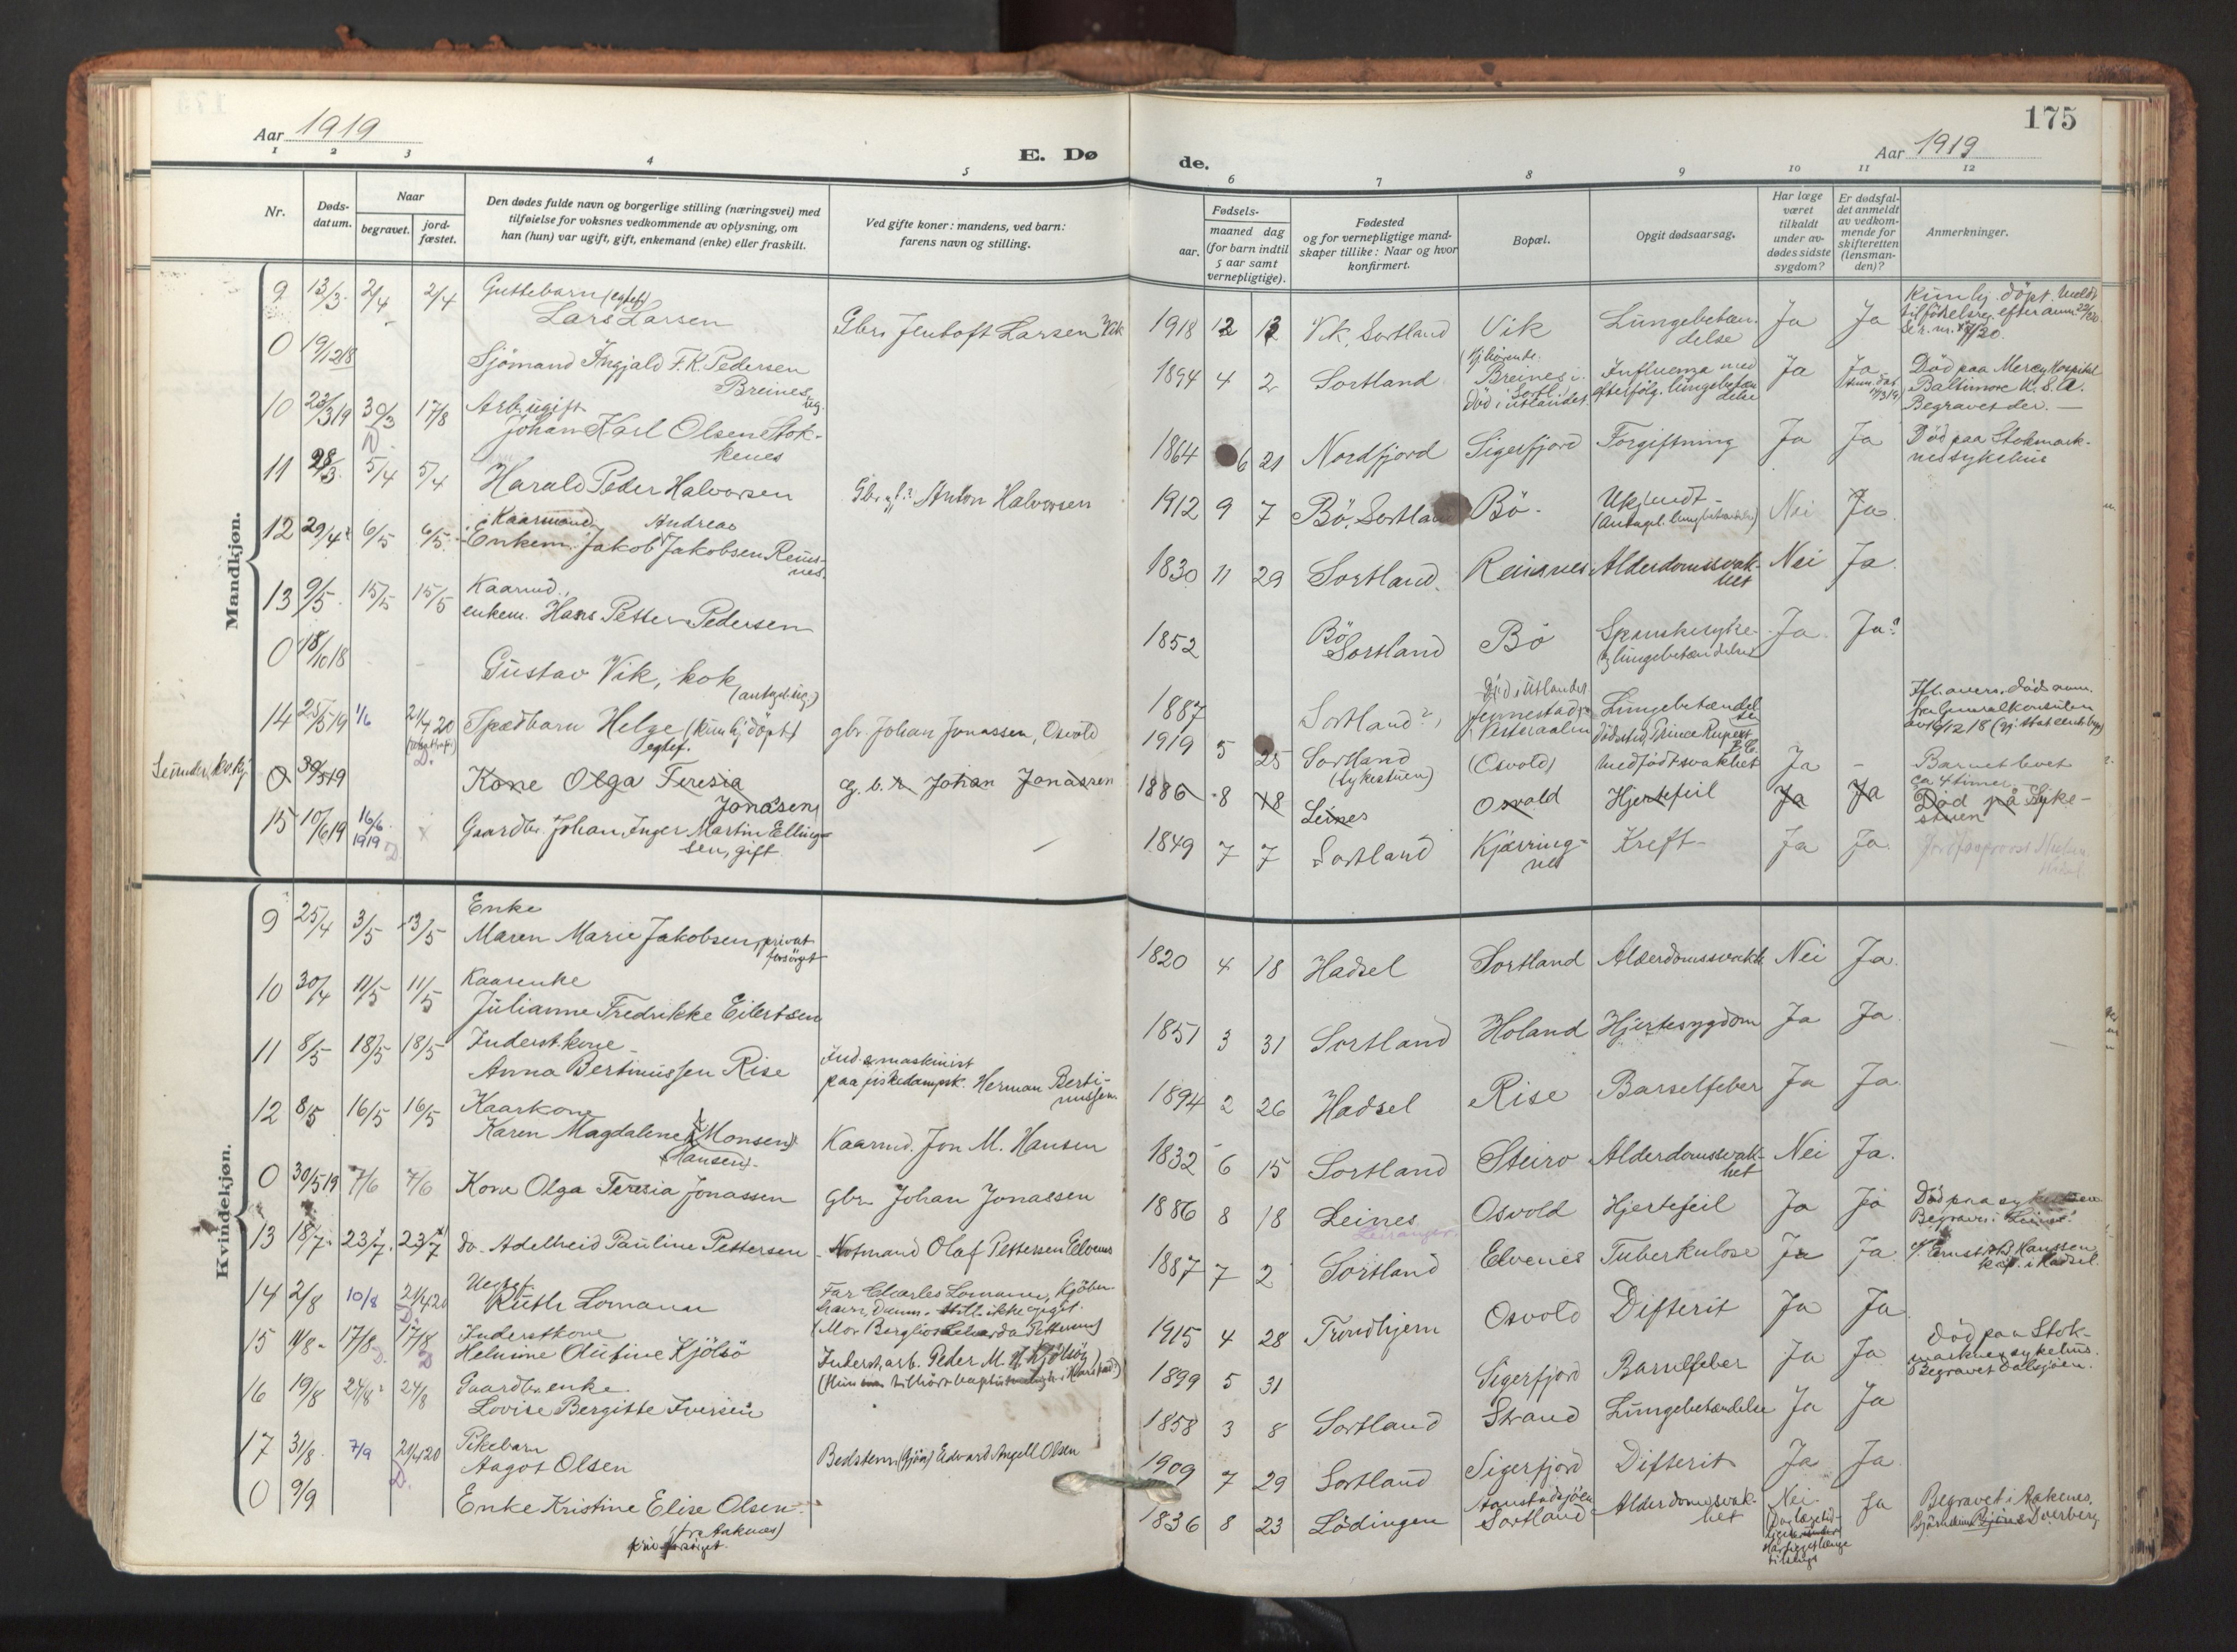 175
Aar 1919
E. Dø
de.
Aar 1919
1 2 3 4 5 6 7 8 9 10 11 12
Nr.
Døds-
datum.
Naar
begravet.
jord-
fæstet.
Den dødes fulde navn og borgerlige stilling (næringsvei) med
tilføielse for voksnes vedkommende av oplysning, om
han (hun) var ugift, gift, enkemand (enke) eller fraskilt.
Ved gifte koner: mandens, ved barn:
farens navn og stilling.
Fødsels-
aar.
maaned dag
(for barn indtil
5 aar samt
vernepligtige).
Fødested
og for vernepligtige mand-
skaper tillike: Naar og hvor
konfirmert.
Bopæl.
Opgit dødsaarsag.
Har læge
været
tilkaldt
under av-
dødes sidste
sygdom?
Er dødsfal-
det anmeldt
av vedkom-
mende for
skifteretten
(lensman-
den)?
Anmerkninger.
Mandkjøn.
9 13/3 2/4 2/4 Guttebarn (egtef)
Lars Larsen
Gbr. Jentoft Larsen Vik
1918 12 Vik, Sortland Vik Lungebetæn-
delse Ja Ja
0 19/12 18 Sjömand Ingjald F. K. Pedersen
Breines, ug.
1894 4 2 Sortland
Breines i Sortl.
Död i utlandet.
Influenza med
efterfölg. lungebetæn
delse
Ja Ja
Död paa Mercy Hospital
Baltimore U. S. A.
Begravet der. —
10 23/3 19 30/3 17/8 Arb. ugift
Johan Karl Olsen Stok-
kenes
1864 6 21 Nordfjord Sigerfjord Forgiftning Ja Ja
Död paa Stokmark-
nes sykehus
11 28/3 5/4 5/4 Harald Peder Halvorsen
Anton Halvorsen
1912 9 7 Bö, Sortland Bö. Ukjendt -
Nei Ja.
12 29/4 6/5 6/5 Kaarmand Andreas
Enkem. Jakob Jakobsen Reins-
nes.
1830 11 29 Sortland. Reinsnes Alderdomssvak-
het Nei Ja
13 9/5 15/5 15/5 Kaarmd.,
enkem. Hans Petter Pedersen
1852 Bö
Sortland Bö Spanskesyke
og lungebetændelse Ja Ja?
0 18/10 18 Gustav Vik, kok
(antagel. ug.)
1887 Sortland? Död i Utlandet
Jennestad
Vesteraalen
Lungebetændel
se
Dödssted, Prince Rupert
B.C.
14 25/5 19 1/6 21/4 20 Spædbarn Helge (kun hj. döpt)
egtef.
gbr. Johan Jonassen, Osvold
1919 5 25 Sortland
(Sykestuen) (Osvold) Medfödt svakhet Ja -
Barnet levet
ca 4 timer.
Se under kv. kj.
0 30/5 19 Kone Olga Teresia
Jonassen
G. b. r. Johan Jonassen
1886 8 18 Leines Osvold Hjertefeil Ja Ja
Död på Syke-
stuen
15 10/6 19 16/6
1919 Gaardbr. Johan Inger Martin Elling-
sen, gift
1849 7 7 Sortland Kjerring-
nes Kreft Ja Ja.
Kvindekjøn.
9 25/4 3/5 13/5 Enke
Maren Marie Jakobsen, privat
forsörget
1820 4 18 Hadsel Sortland Alderdomssvakh. Nei Ja.
10 30/4 11/5 11/5 Kaarenke
Julianne Fredrikke Eilertsen
1851 3 31 Sortland Holand Hjertesygdom Ja Ja
11 8/5 18/5 18/5 Inderst.kone
Anna Bertinussen Rise
Ind. & maskinist
paa fiskedampsk. Herman Berti-
nussen
1894 2 26 Hadsel Rise Barselfeber Ja Ja
12 8/5 16/5 16/5 Kaarkone
Karen Magdalene (Monsen)
Hansen
Kaarmd. Jon M. Hansen
1832 6 15 Sortland Steiro Alderdomssvak-
het Nei Ja.
0 30/5 19 7/6 7/6 Kone Olga Teresia Jonassen
Gbr. Johan Jonassen
1886 8 18 Leines
Leiranger
Osvold Hjertefeil Ja Ja
Död paa sykestuen
Begravet i Leines.
13 18/7 23/7 23/7 do. Adelheid Pauline Pettersen
Notmand Olaf Pettersen Elvenes
1887 7 2 Sortland Elvenes Tuberkulose Ja Ja
kap. i Hadsel.
14 2/8 10/8 21/4 20 Uegtef.
Ruth Lomann
Far Charles Lomann, Kjöben-
havn, Danm. Still. ikke opgit.
1915 4 28 Trondhjem Osvold Difterit Ja Ja
15 11/8 17/8 17/8 Inderstkone
Helmine Olufine Kjölsö
Inderst, arb. Peder M. Kjölsöy
1899 5 31 Sigerfjord Barselfeber Ja Ja
Död paa Stok-
marknes sykehus.
Begravet Dalsjöen.
16 19/8 24/8 24/8 Gaardbr. enke
Lovise Bergitte Iversen
1858 3 8 Sortland Strand Lungebetændelse Ja Ja
17 31/8 7/9 21/4 20 Pikebarn
Aagot Olsen
Edvard Angell Olsen
1909 7 29 Sortland Sigerfjord Difterit Ja Ja
0 9/9 Enke Kristine Elise Olsen
(fra Aaknes)
priv. forsörget.
1836 8 23 Lödingen Sortland Alderdomssvak-
het Nei. Ja
Begravet i Aaknes,